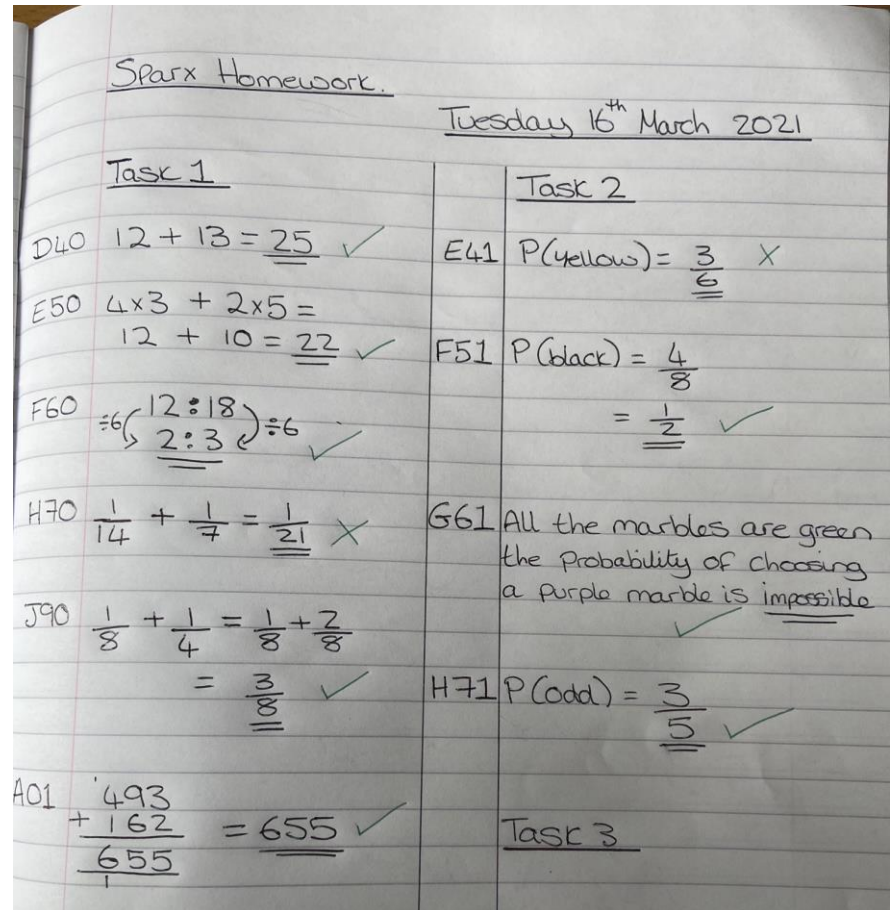 Sparx Homework.
Tuesday 16th March 2021
Task 1
D40 12 + 13 = 25 ✓
E50 4x3 + 2x5 =
12 + 10 = 22 ✓
F60 ÷6 12:18 ÷6
2:3 ✓
H70 1/14 + 1/7 = 1/21 ✗
J90 1/8 + 1/4 = 1/8 + 2/8
= 3/8 ✓
A01 493
+ 162 = 655 ✓
655
1
Task 2
E41 P(yellow) = 3/6 ✗
F51 P(black) = 4/8
= 1/2 ✓
G61 All the marbles are green
the probability of choosing
a purple marble is impossible
✓
H71 P(odd) = 3/5 ✓
Task 3